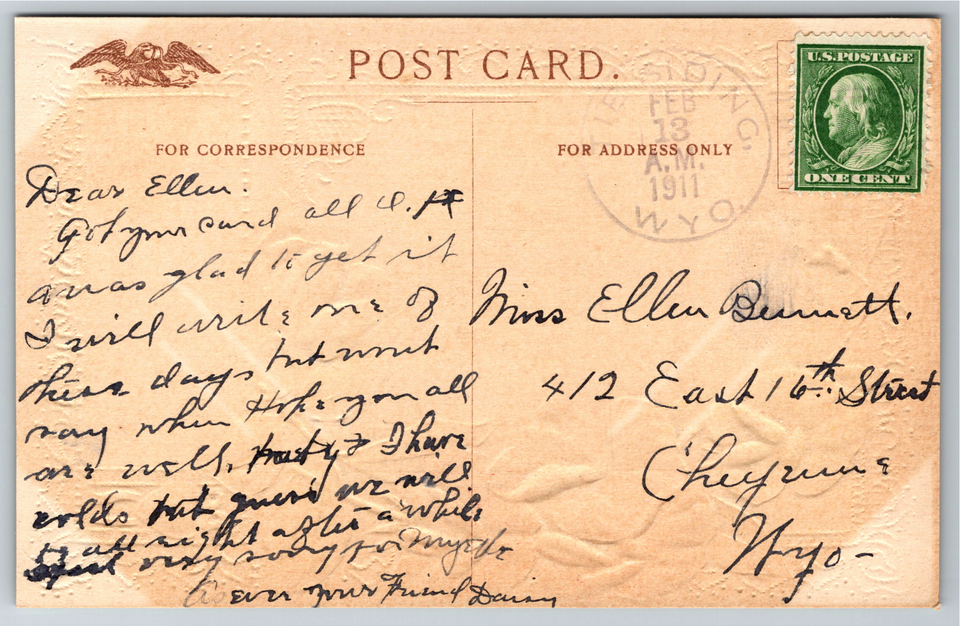 POST CARD.
FOR CORRESPONDENCE
FOR ADDRESS ONLY
U.S. POSTAGE
ONE CENT
SIDING,
FEB
13
A.M.
1911
WYO
Dear Ellen.
Got your card all O.K
was glad to get it
I will write one of
these days but wont
say when Hope you all
are well. & I have
colds but guess we will
be all right after a while
very sorry for Myrtle
ever your Friend Daisy
Miss Ellen Bennett.
412 East 16th Street
Cheyenne
Wyo-